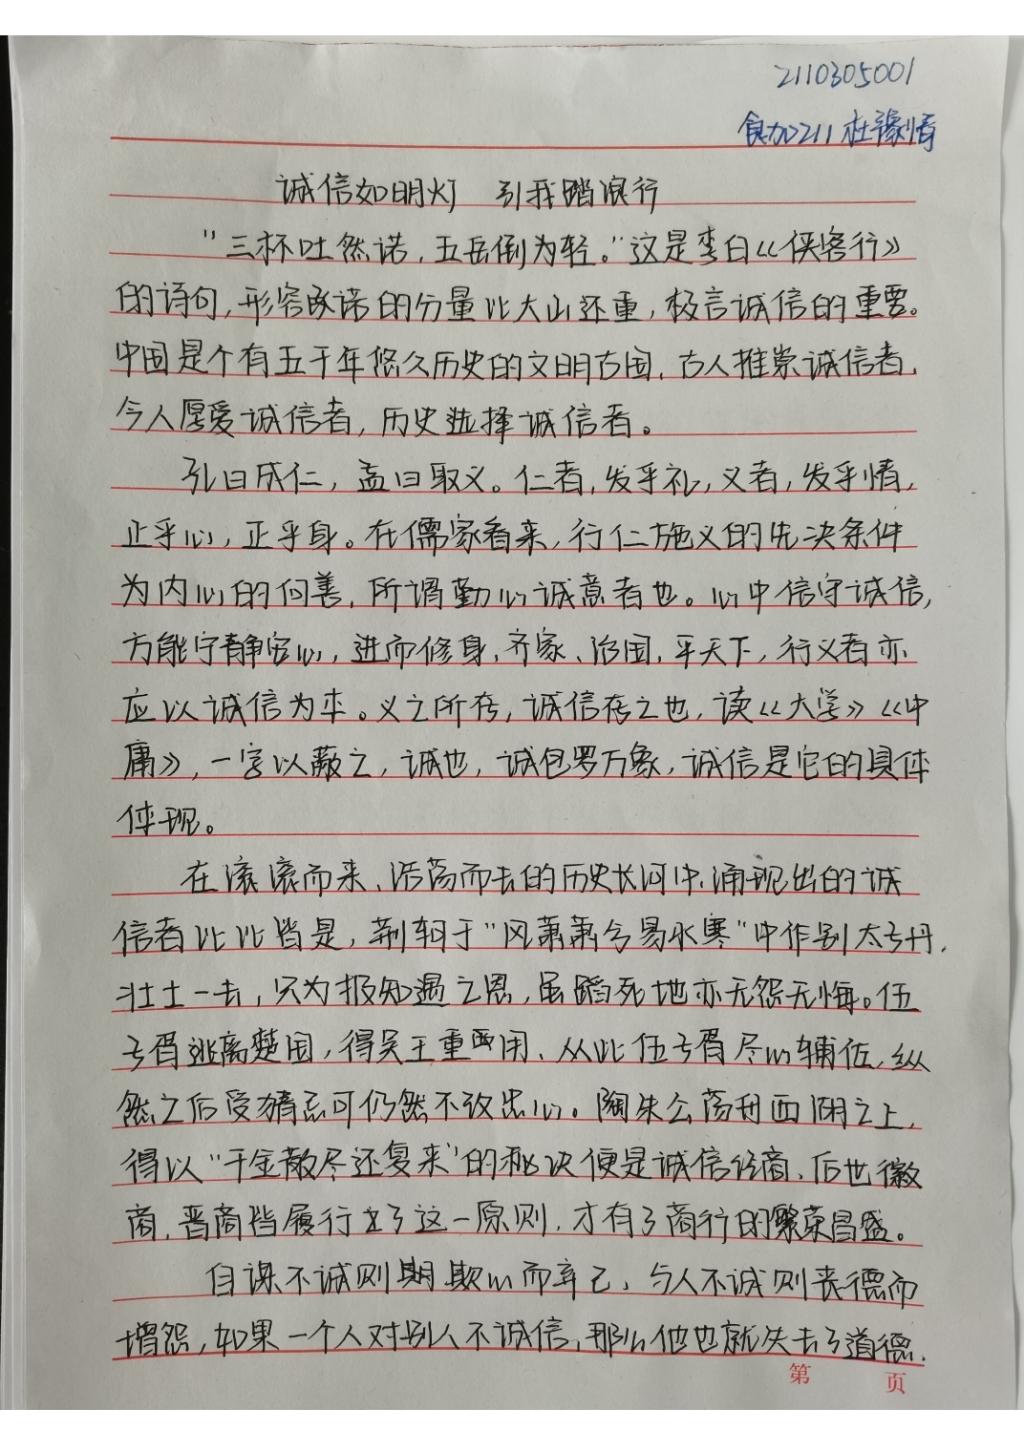 2110305001
食加211 杜
诚信如明灯 引我踏浪行
“三杯吐然诺，五岳倒为轻。”这是李白《侠客行》
的诗句，形容承诺的分量比大山还重，极言诚信的重要。
中国是个有五千年悠久历史的文明古国，古人推崇诚信者，
今人厚爱诚信者，历史选择诚信者。
孔曰成仁，孟曰取义。仁者，发乎礼，义者，发乎情，
止乎心，正乎身。在儒家看来，行仁施义的先决条件
为内心的向善，所谓勤心诚意者也。心中信守诚信，
方能宁静安心，进而修身、齐家、治国，平天下，行义者亦
应以诚信为本。义之所存，诚信存之也，读《大学》《中
庸》，一字以蔽之，诚也，诚包罗万象，诚信是它的具体
体现。
在滚滚而来、浩荡而去的历史长河中，涌现出的诚
信者比比皆是，荆轲于“风萧萧兮易水寒”中作别太子丹，
壮士一去，只为报知遇之恩，虽踏死地亦无怨无悔。伍
子胥逃离楚国，得吴王重用、从此伍子胥尽心辅佐，纵
然之后受猜忌可仍然不改忠心。陶朱公荡舟西湖之上，
得以“千金散尽还复来”的秘诀便是诚信经商，后世徽
商，晋商皆履行着这一原则，才有了商行的繁荣昌盛。
自谋不诚则期欺心而弃己，与人不诚则丧德而
增怨，如果一个人对别人不诚信，那么他也就失去了道德，
第 页